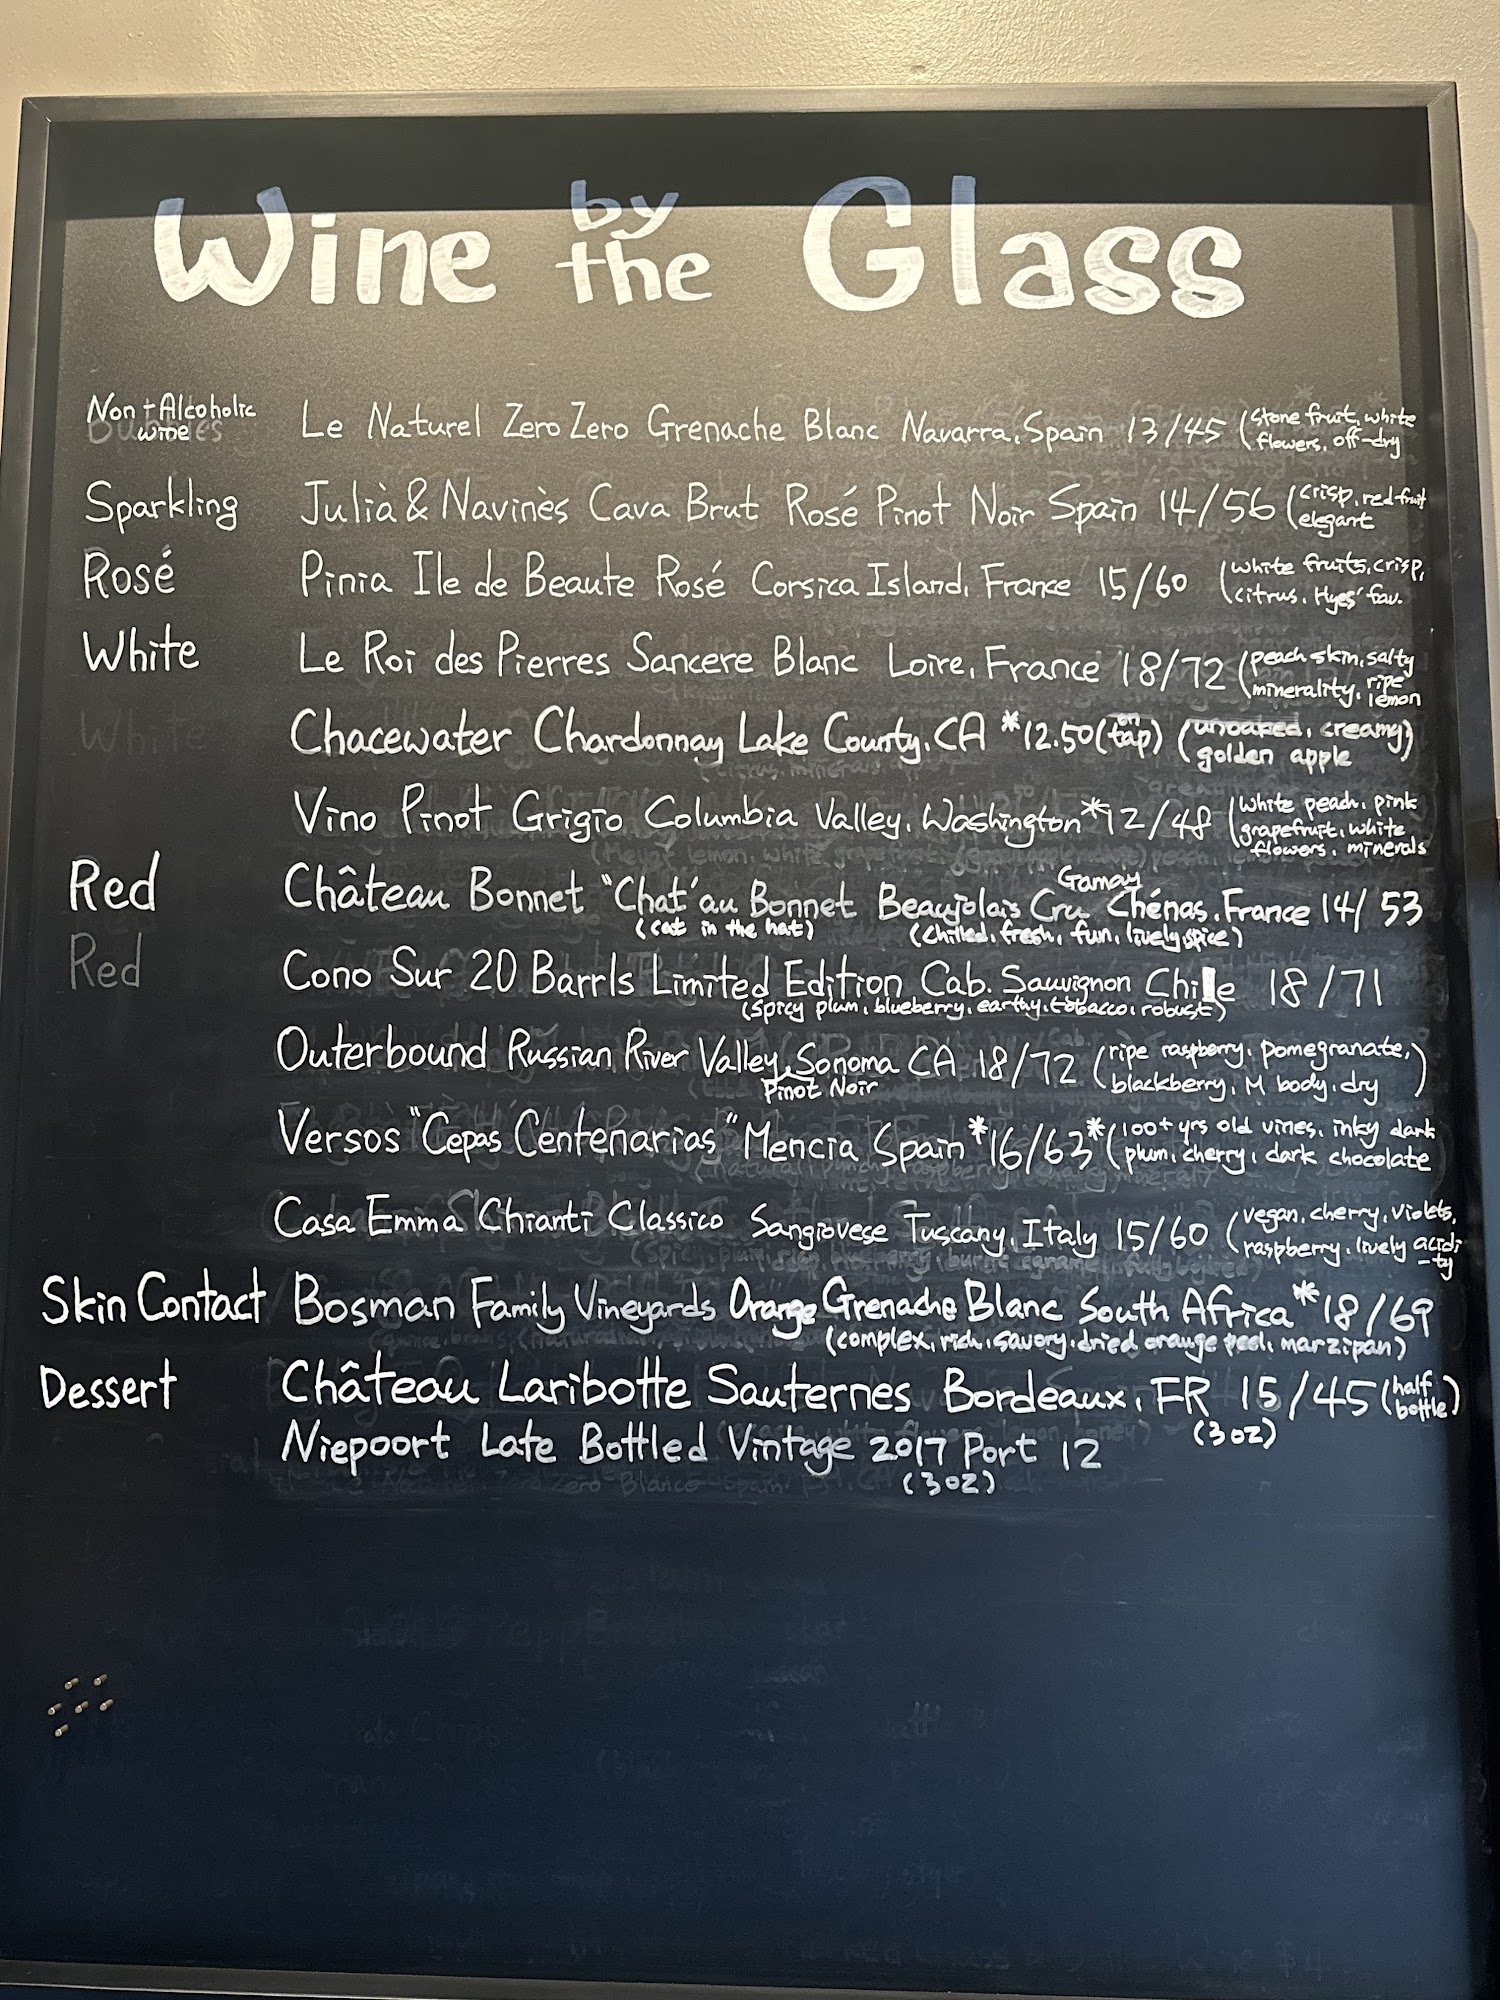 Wine by the Glass
Non-Alcoholic wine Le Naturel Zero Zero Grenache Blanc Navarra, Spain 13/45 (stone fruit, white flowers, off-dry
Sparkling Julià & Navinès Cava Brut Rosé Pinot Noir Spain 14/56 (crisp, red fruit elegant
Rosé Pinia Ile de Beaute Rosé Corsica Island, France 15/60 (white fruits, crisp, citrus, Hyes' fav.
White Le Roi des Pierres Sancere Blanc Loire, France 18/72 (peach skin, salty minerality, ripe lemon
White Chacewater Chardonnay Lake County, CA *12.50 (on tap) (unoaked, creamy) golden apple
Vino Pinot Grigio Columbia Valley, Washington *12/48 (white peach, pink grapefruit, white flowers, minerals
Red Château Bonnet "Chat' au Bonnet Beaujolais Cru Gamay Chénas, France 14/53
(cat in the hat) (chilled, fresh, fun, lively spice)
Red Cono Sur 20 Barrls Limited Edition Cab. Sauvignon Chile 18/71
(spicy plum, blueberry, earthy, tobacco, robust)
Outerbound Russian River Valley, Sonoma CA 18/72 (ripe raspberry, pomegranate, blackberry, M body, dry)
Pinot Noir
Versos "Cepas Centenarias" Mencia Spain *16/63* (100+ yrs old vines, inky dark plum, cherry, dark chocolate
Casa Emma Chianti Classico Sangiovese Tuscany, Italy 15/60 (vegan, cherry, violets, raspberry, lively acidi-ty
Skin Contact Bosman Family Vineyards Orange Grenache Blanc South Africa *18/69
(complex, rich, savory, dried orange peel, marzipan)
Dessert Château Laribotte Sauternes Bordeaux, FR 15/45 (half bottle)
(3oz)
Niepoort Late Bottled Vintage 2017 Port 12
(3oz)